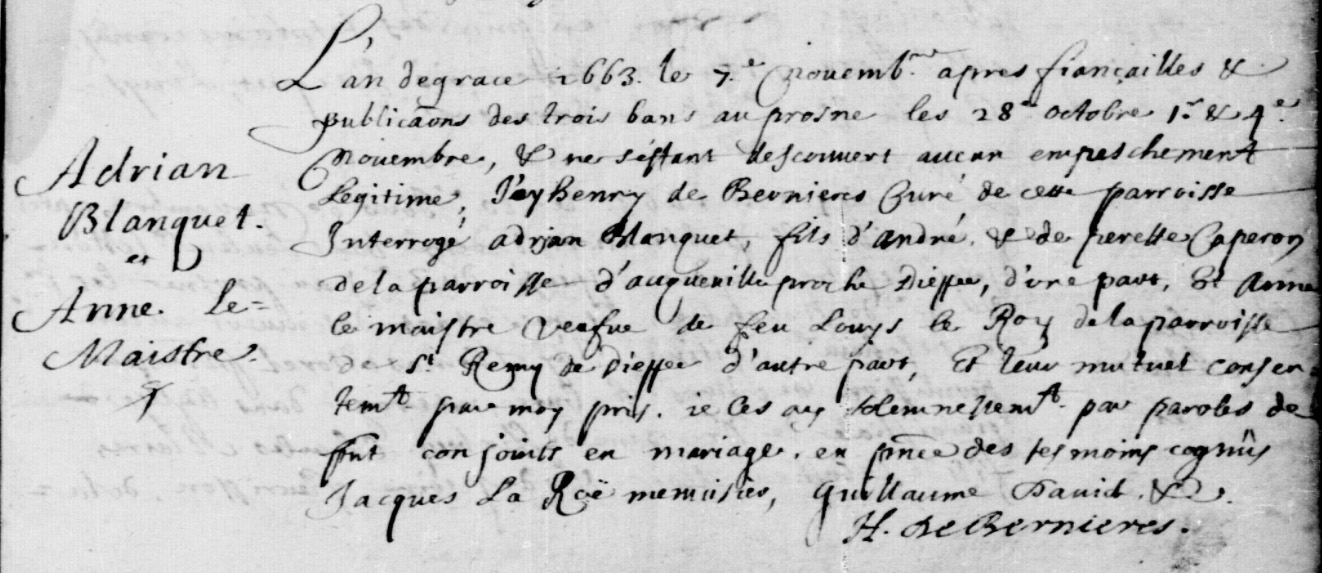 L'an de grace 1663. le 7.e Novemb.re apres fiançailles &
publicãons des trois bans au prosne les 28e octobre 1.r & 4.e
Novembre, & ne s'estant descouvert aucun empeschement
Legitime, J'ay Henry de Bernieres Curé de cette parroisse
Adrian
Blanquet.
et
Anne. le=
Maistre.
Interrogé adrjan Blanquet, fils d'André. & de perette Caperon
de la parroisse d'auqueville proche Dieppe, d'une part, Et Anne
le maistre veufue de feu Louys le Roy de la parroisse
St. Remy de Dieppe d'autre part, Et leur mutuel consen
temt. par moy pris. ie les ay solemnellemt. par paroles de
pnt conjoints en mariage. en pñce des tesmoins cognûs
Jacques La Roë menuisier, Guillaume David. &.
H. de Bernieres.